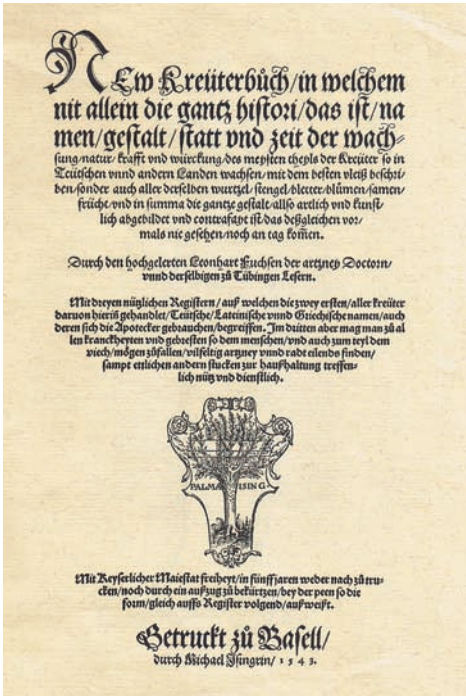 New Kreüterbůch/in welchem
nit allein die gantz histori/das ist/na
men/gestalt/statt vnd zeit der wach⸗
sung/natur/krafft vnd würckung/des meysten theyls der Kreüter so in
Teütschen vnnd andern Landen wachsen/mit dem besten vleiß beschri
ben/sonder auch aller derselben wurtzel/stengel/bletter/blůmen/samen/
frücht/vnd in summa die gantze gestalt/allso artlich vnd kunst
lich abgebildet vnd contrafayt ist/das deßgleichen vor/
mals nie gesehen/noch an tag kom̃en.
Durch den hochgelerten Leonhart Fuchsen der artzney Doctorn/
vnnd derselbigen zů Tübingen Lesern.
Mit dreyen nützlichen Registern/auß welchen die zwey ersten/aller kreüter
daruon hieriñ gehandlet/Teütsche/Lateinische vnnd Griechische namen/auch
deren sich die Apotecker gebrauchen/begreiffen. Im dritten aber mag man zů al
len kranckheyten vnd gebresten so dem menschen/vnd auch zum teyl dem
viech/mögen zůfallen/vilfeltig artzney vnnd radt eilends finden/
sampt ettlichen andern stucken zur haußhaltung treffen⸗
lich nütz vnd dienstlich.
PALMA ISING
Mit Keyserlicher Maiestat freiheyt/in fünff jaren weder nach zů tru⸗
cken/noch durch ein außzug zů bekürtzen/bey der peen so die
form/gleich auffs Register volgend/außweißt.
Getruckt zů Basell/
durch Michael Isingrin/ 1543.